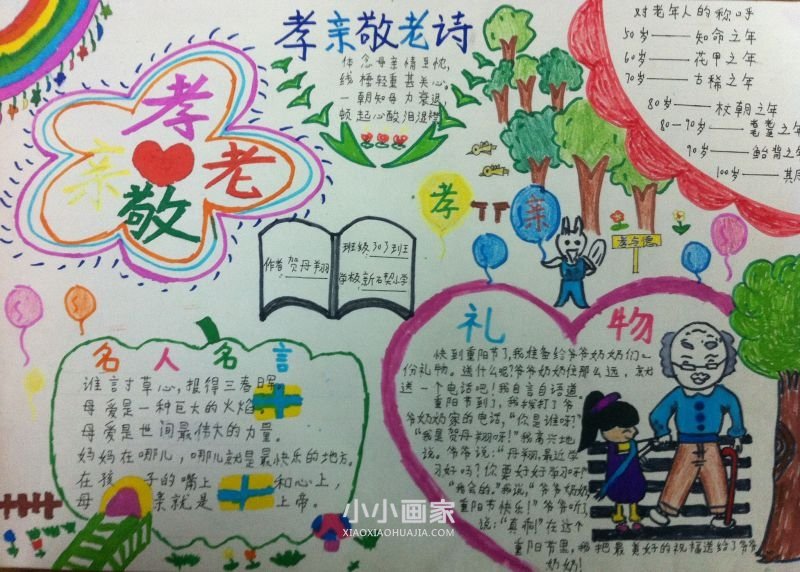 孝亲敬老诗
体念母亲情至忱,
线棰轻重甚关心。
一朝知母力衰退,
顿起心酸泪湿襟
孝
亲
老
敬
对老年人的称呼
50岁——知命之年
60岁——花甲之年
70岁——古稀之年
80岁——杖朝之年
80-90岁——耄耋之年
90岁——鲐背之年
100岁——其
孝
亲
孝与德
作者 贺母翔
班级 303班
学校 新石器小学
名人名言
谁言寸草心,报得三春晖。
母爱是一种巨大的火焰。
母爱是世间最伟大的力量。
妈妈在哪儿,哪儿就是最快乐的地方。
在孩子的嘴上和心上,
母亲就是上帝。
礼物
快到重阳节了,我准备给爷爷奶奶们一
份礼物。送什么呢?爷爷奶奶住那么远,就
送一个电话吧!我自言自语道。
重阳节到了,我拨打了爷
爷奶奶家的电话,“你是谁呀?”
“我是贺母翔呀!”我高兴地
说。爷爷说:“母翔,最近学
习好吗?你更好好学习咧!”
“我会的。”我说,“爷爷奶奶
重阳节快乐!”爷爷听了,
说:“真棒!”在这个
重阳节里,我把最美好的祝福送给了爷爷
奶奶!
小小画家
XIAOXIAOHUAJIA.COM